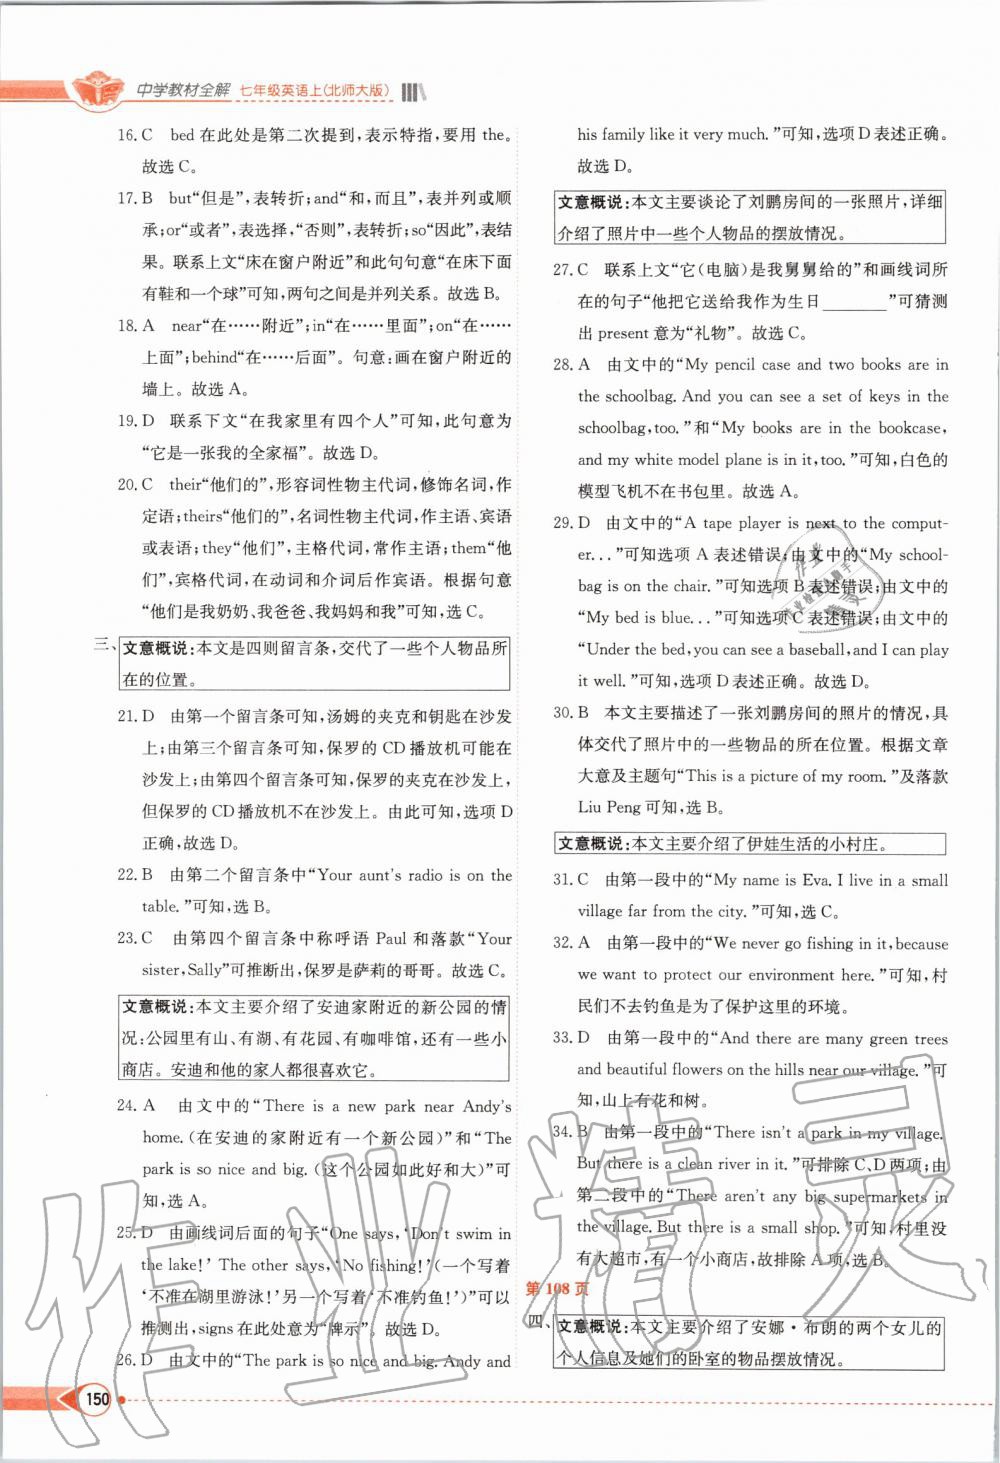 中学教材全解 七年级英语上(北师大版)
16. C bed 在此处是第二次提到,表示特指,要用 the。
故选 C。
17. B but“但是”,表转折;and“和,而且”,表并列或顺
承;or“或者”,表选择,“否则”,表转折;so“因此”,表结
果。联系上文“床在窗户附近”和此句句意“在床下面
有鞋和一个球”可知,两句之间是并列关系。故选 B。
18. A near“在……附近”;in“在……里面”;on“在……
上面”;behind“在……后面”。句意:画在窗户附近的
墙上。故选 A。
19. D 联系下文“在我家里有四个人”可知,此句意为
“它是一张我的全家福”。故选 D。
20. C their“他们的”,形容词性物主代词,修饰名词,作
定语;theirs“他们的”,名词性物主代词,作主语、宾语
或表语;they“他们”,主格代词,常作主语;them“他
们”,宾格代词,在动词和介词后作宾语。根据句意
“他们是我奶奶、我爸爸、我妈妈和我”可知,选 C。
三、文意概说:本文是四则留言条,交代了一些个人物品所
在的位置。
21. D 由第一个留言条可知,汤姆的夹克和钥匙在沙发
上;由第三个留言条可知,保罗的 CD 播放机可能在
沙发上;由第四个留言条可知,保罗的夹克在沙发上,
但保罗的 CD 播放机不在沙发上。由此可知,选项 D
正确,故选 D。
22. B 由第二个留言条中“Your aunt's radio is on the
table.”可知,选 B。
23. C 由第四个留言条中称呼语 Paul 和落款“Your
sister, Sally”可推断出,保罗是萨莉的哥哥。故选 C。
文意概说:本文主要介绍了安迪家附近的新公园的情
况:公园里有山、有湖、有花园、有咖啡馆,还有一些小
商店。安迪和他的家人都很喜欢它。
24. A 由文中的“There is a new park near Andy's
home. (在安迪的家附近有一个新公园)”和“The
park is so nice and big. (这个公园如此好和大)”可
知,选 A。
25. D 由画线词后面的句子“One says, ‘Don't swim in
the lake!’ The other says, ‘No fishing!’(一个写着
‘不准在湖里游泳!’另一个写着‘不准钓鱼!’)”可以
推测出, signs 在此处意为“牌示”。故选 D。
26. D 由文中的“The park is so nice and big. Andy and
his family like it very much.”可知,选项 D 表述正确。
故选 D。
文意概说:本文主要谈论了刘鹏房间的一张照片,详细
介绍了照片中一些个人物品的摆放情况。
27. C 联系上文“它(电脑)是我舅舅给的”和画线词所
在的句子“他把它送给我作为生日________”可猜测
出 present 意为“礼物”。故选 C。
28. A 由文中的“My pencil case and two books are in
the schoolbag. And you can see a set of keys in the
schoolbag, too.”和“My books are in the bookcase,
and my white model plane is in it, too.”可知,白色的
模型飞机不在书包里。故选 A。
29. D 由文中的“A tape player is next to the comput-
er...”可知选项 A 表述错误;由文中的“My school-
bag is on the chair.”可知选项 B 表述错误;由文中的
“My bed is blue...”可知选项 C 表述错误;由文中的
“Under the bed, you can see a baseball, and I can play
it well.”可知,选项 D 表述正确。故选 D。
30. B 本文主要描述了一张刘鹏房间的照片的情况,具
体交代了照片中的一些物品的所在位置。根据文章
大意及主题句“This is a picture of my room.”及落款
Liu Peng 可知,选 B。
文意概说:本文主要介绍了伊娃生活的小村庄。
31. C 由第一段中的“My name is Eva. I live in a small
village far from the city.”可知,选 C。
32. A 由第一段中的“We never go fishing in it, because
we want to protect our environment here.”可知,村
民们不去钓鱼是为了保护这里的环境。
33. D 由第一段中的“And there are many green trees
and beautiful flowers on the hills near our village.”可
知,山上有花和树。
34. B 由第一段中的“There isn't a park in my village.
But there is a clean river in it.”可排除 C、D 两项;由
第二段中的“There aren't any big supermarkets in
the village. But there is a small shop.”可知,村里没
有大超市,有一个小商店,故排除 A 项,选 B。
第 108 页
四、文意概说:本文主要介绍了安娜·布朗的两个女儿的
个人信息及她们的卧室的物品摆放情况。
150
作业精灵